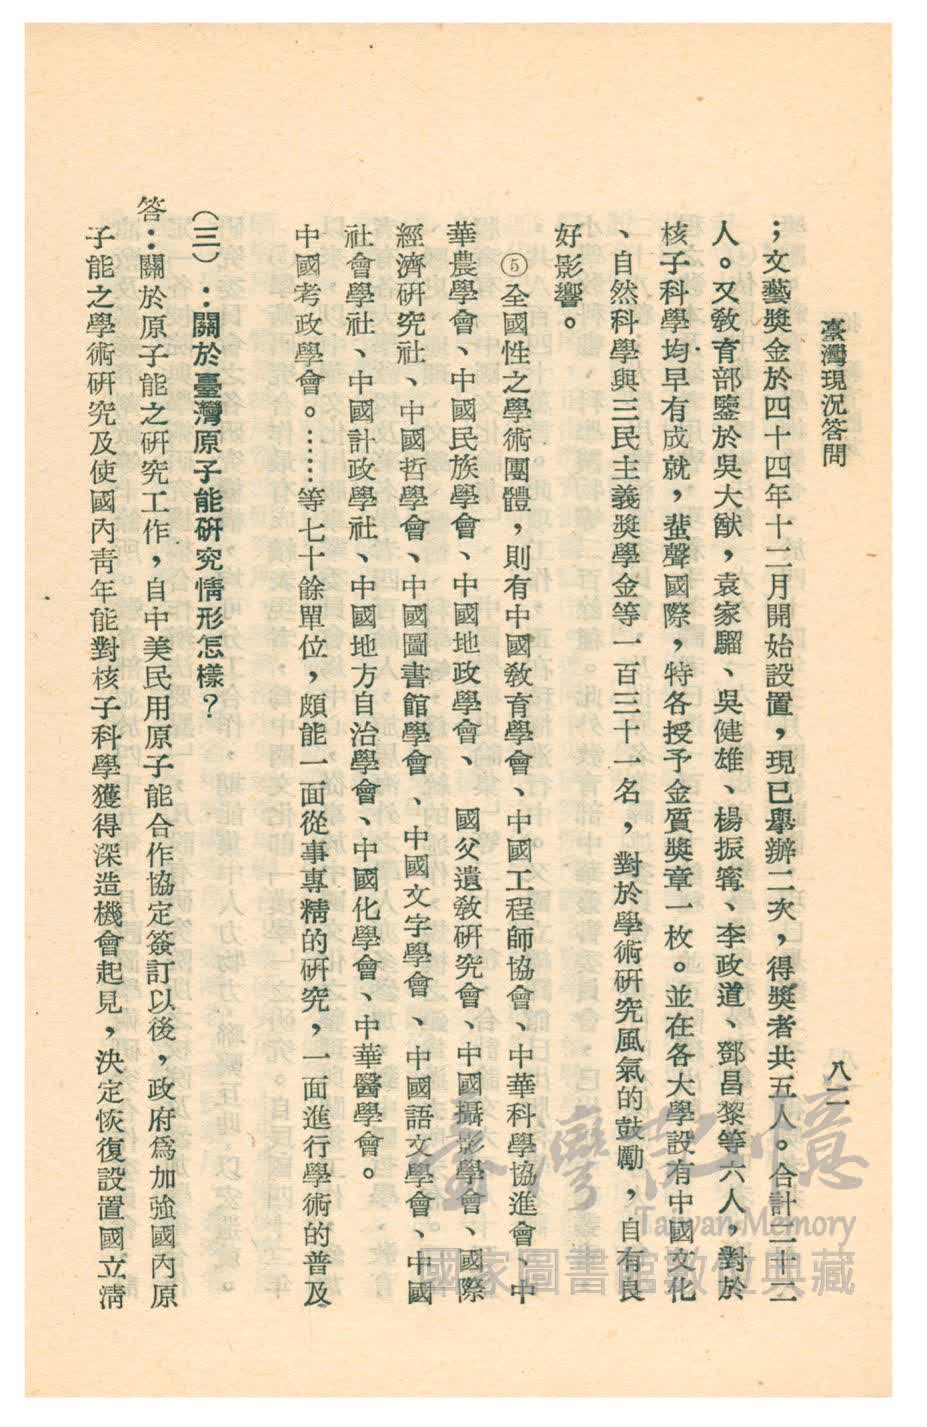 臺灣現況答問
八二
；文藝獎金於四十四年十二月開始設置，現已舉辦二次，得獎者共五人。合計二十二
人。又教育部鑒於吳大猷，袁家騮、吳健雄、楊振寧、李政道、鄧昌黎等六人，對於
核子科學均早有成就，蜚聲國際，特各授予金質獎章一枚。並在各大學設有中國文化
、自然科學與三民主義獎學金等一百三十一名，對於學術研究風氣的鼓勵，自有良
好影響。
⑤全國性之學術團體，則有中國教育學會、中國工程師協會、中華科學協進會、中
華農學會、中國民族學會、中國地政學會、　國父遺教研究會、中國攝影學會、國際
經濟研究社、中國哲學會、中國圖書館學會、中國文字學會、中國語文學會、中國
社會學社、中國計政學社、中國地方自治學會、中國化學會、中華醫學會。
中國考政學會。……等七十餘單位，頗能一面從事專精的研究，一面進行學術的普及
（三）：關於臺灣原子能研究情形怎樣？
答：關於原子能之研究工作，自中美民用原子能合作協定簽訂以後，政府爲加強國內原
子能之學術研究及使國內靑年能對核子科學獲得深造機會起見，決定恢復設置國立淸
臺灣記憶
Taiwan Memory
國家圖書館數位典藏